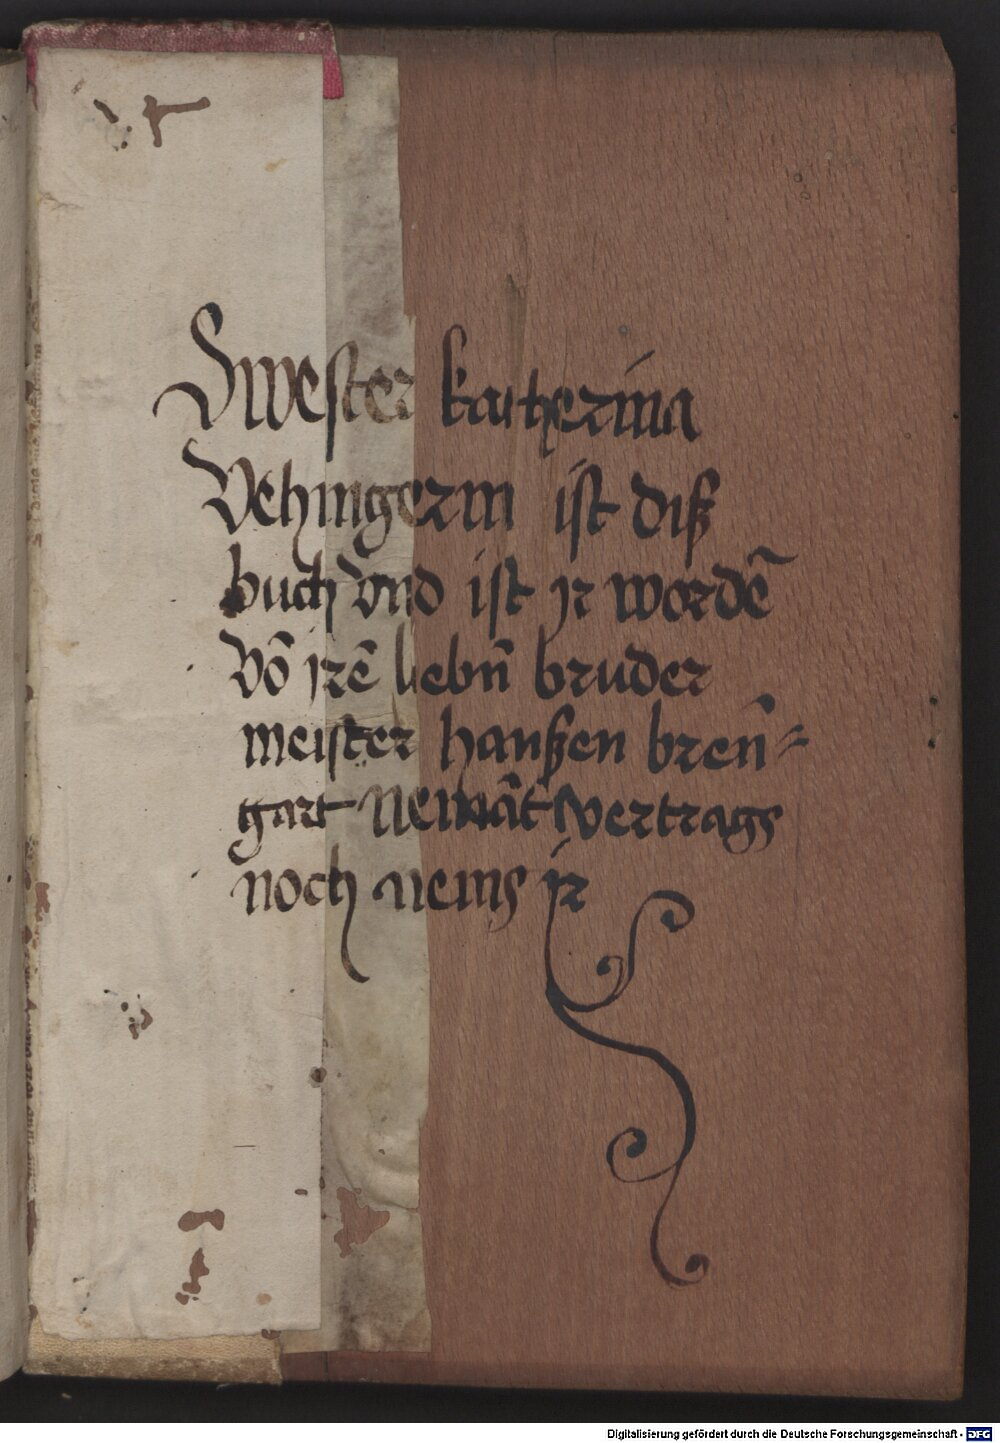 Swester katherina
Vehingerin ist diß
buch vnd ist jr wordē
vō jrē liebn̄ bruder
meister hanßen bren̄=
gart Nemāt vertrags
noch nems ir
Digitalisierung gefördert durch die Deutsche Forschungsgemeinschaft - DFG